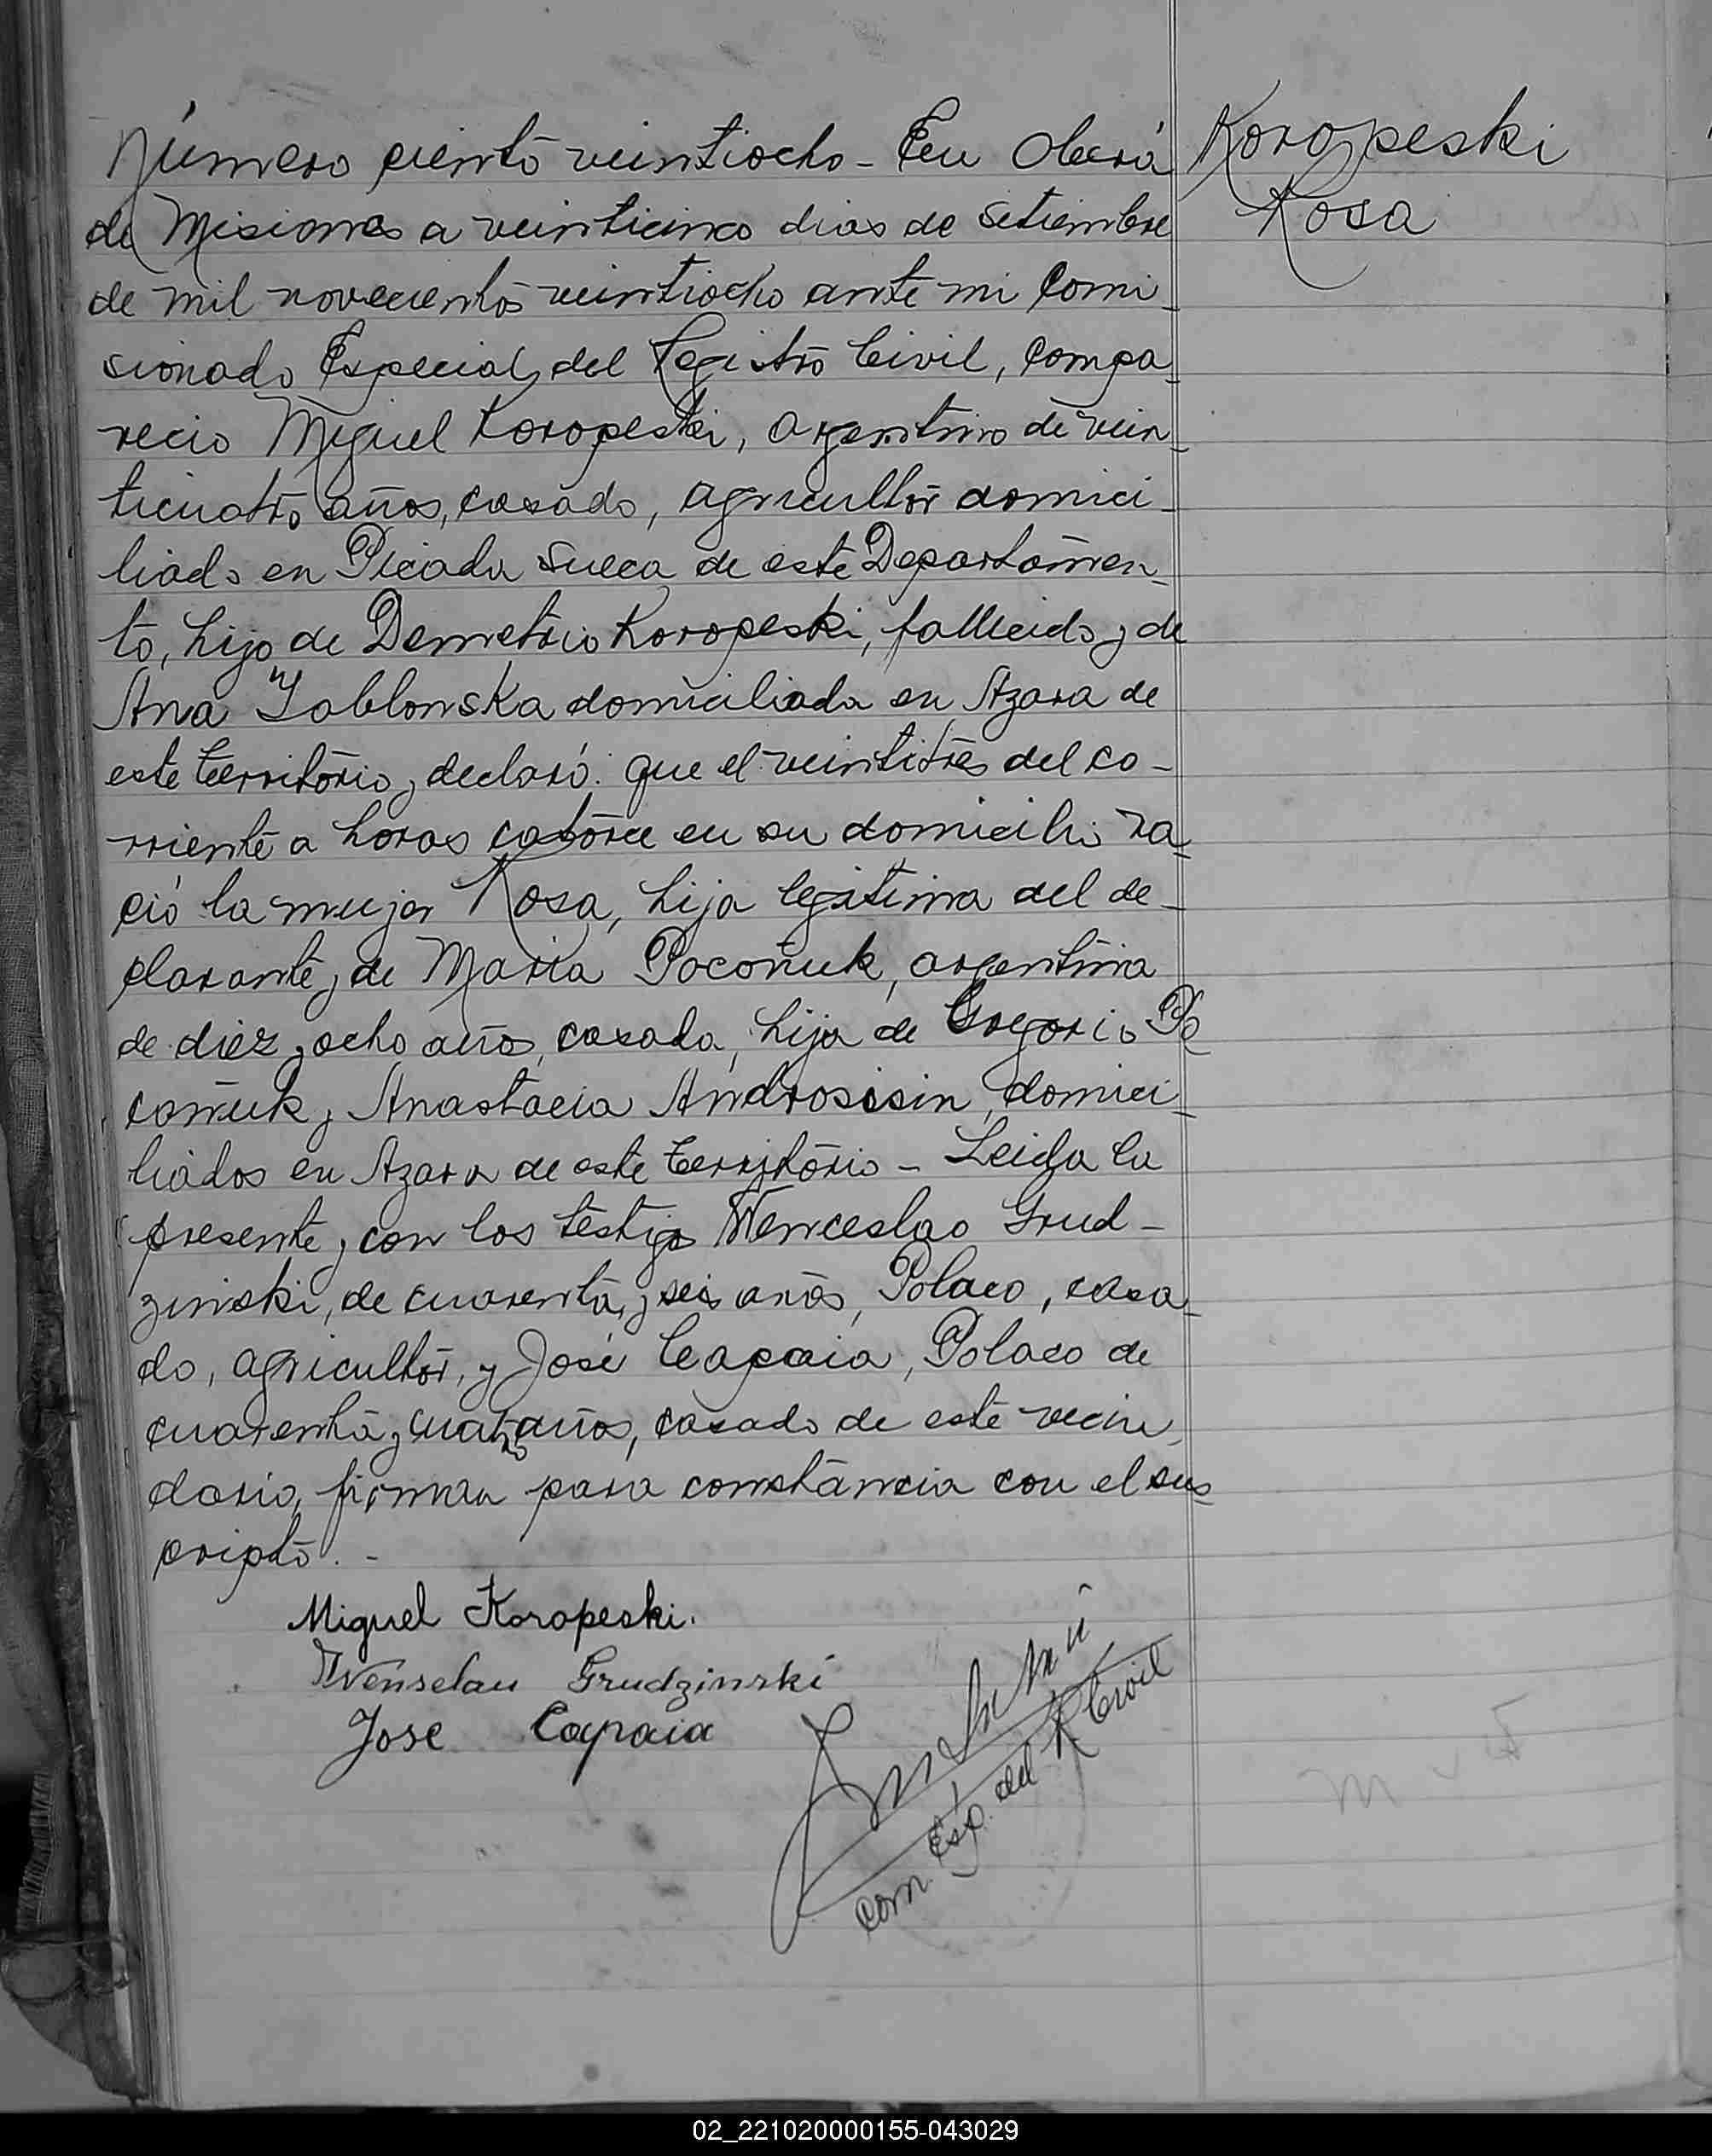 Koropeski
Rosa
Número ciento veintiocho - En Oberá
de Misiones a veinticinco dias de Setiembre
de mil novecientos veintiocho ante mi Comi-
sionado Especial del Registro Civil, compa-
recio Miguel Koropeski, argentino de vein-
ticuatro años, casado, agricultor domici-
liado en Picada Sueca de este Departamen-
to, hijo de Demetrio Koropeski, fallecido y de
Ana Yablonska domiciliada en Azara de
este territorio, declaró: que el veintitres del co-
rriente a horas catorce en su domicilio na-
ció la mujer Rosa, hija legitima del de-
clarante y de Maria Pocoñuk, argentina
de diez y ocho años, casada, hija de Gregorio Po
coñuk y Anastacia Androsisin, domici-
liados en Azara de este territorio - Leida la
presente y con los testigos Wenceslao Grud-
zinski, de cuarenta y seis años, Polaco, casa-
do, agricultor, y José Capaia, Polaco de
cuarenta y cuatro años, casado de este vecin-
dario, firman para constancia con el sus-
cripto. -
Miguel Koropeski.
Wenselau Grudzinski
Jose Capaia
Com. Esp. del R Civil
02_221020000155-043029